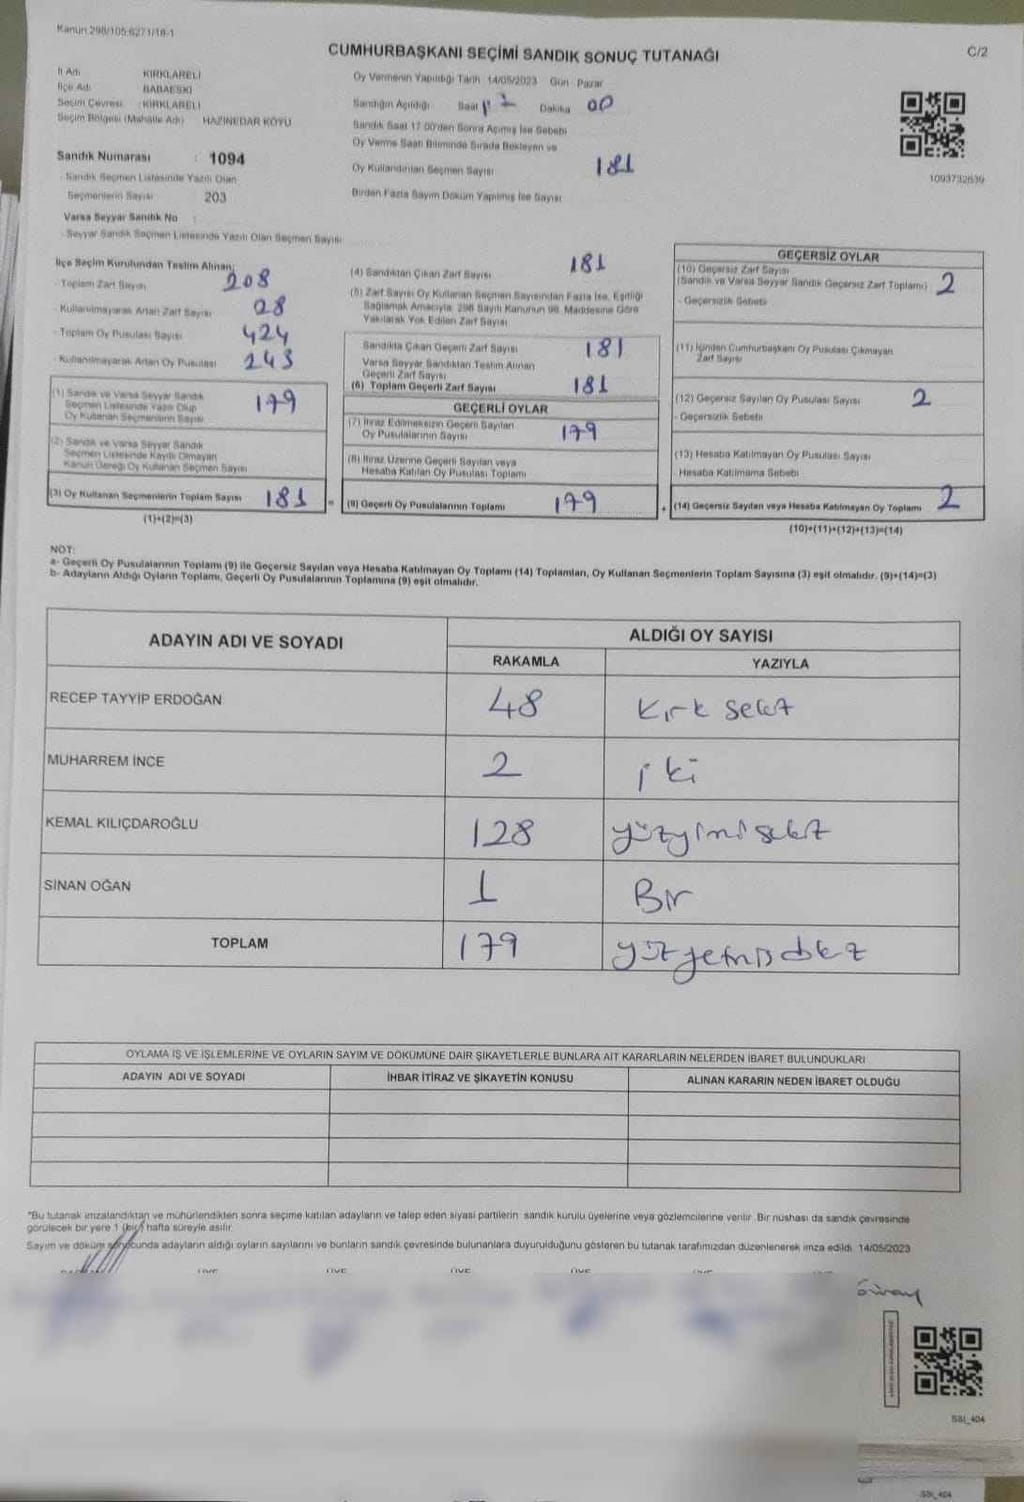 Kanun 298/105;6271/18-1
CUMHURBAŞKANI SEÇİMİ SANDIK SONUÇ TUTANAĞI
C/2
İl Adı KIRKLARELİ
İlçe Adı BABAESKİ
Seçim Çevresi KIRKLARELİ
Seçim Bölgesi (Mahalle Adı) HAZİNEDAR KÖYÜ
Sandık Numarası : 1094
- Sandık Seçmen Listesinde Yazılı Olan
Seçmenlerin Sayısı 203
Varsa Seyyar Sandık No :
- Seyyar Sandık Seçmen Listesinde Yazılı Olan Seçmen Sayısı
Oy Vermenin Yapıldığı Tarih 14/05/2023 Gün Pazar
Sandığın Açıldığı Saat 17 Dakika 00
Sandık Saat 17.00'den Sonra Açılmış İse Sebebi
Oy Verme Saati Bitiminde Sırada Bekleyen ve
Oy Kullandırılan Seçmen Sayısı 181
Birden Fazla Sayım Döküm Yapılmış İse Sayısı
1093732639
İlçe Seçim Kurulundan Teslim Alınan;
- Toplam Zarf Sayısı 208
- Kullanılmayarak Artan Zarf Sayısı 28
- Toplam Oy Pusulası Sayısı 424
- Kullanılmayarak Artan Oy Pusulası 243
(1) Sandık ve Varsa Seyyar Sandık
Seçmen Listesinde Yazılı Olup
Oy Kullanan Seçmenlerin Sayısı 179
(2) Sandık ve Varsa Seyyar Sandık
Seçmen Listesinde Kayıtlı Olmayan
Kanun Gereği Oy Kullanan Seçmen Sayısı
(3) Oy Kullanan Seçmenlerin Toplam Sayısı 181 =
(1)+(2)=(3)
(4) Sandıktan Çıkan Zarf Sayısı 181
(5) Zarf Sayısı Oy Kullanan Seçmen Sayısından Fazla İse, Eşitliği
Sağlamak Amacıyla; 298 Sayılı Kanunun 98. Maddesine Göre
Yakılarak Yok Edilen Zarf Sayısı
Sandıkta Çıkan Geçerli Zarf Sayısı 181
Varsa Seyyar Sandıktan Teslim Alınan
Geçerli Zarf Sayısı
(6) Toplam Geçerli Zarf Sayısı 181
GEÇERLİ OYLAR
(7) İtiraz Edilmeksizin Geçerli Sayılan
Oy Pusulalarının Sayısı 179
(8) İtiraz Üzerine Geçerli Sayılan veya
Hesaba Katılan Oy Pusulası Toplamı
(9) Geçerli Oy Pusulalarının Toplamı 179 +
GEÇERSİZ OYLAR
(10) Geçersiz Zarf Sayısı
(Sandık ve Varsa Seyyar Sandık Geçersiz Zarf Toplamı) 2
- Geçersizlik Sebebi
(11) İçinden Cumhurbaşkanı Oy Pusulası Çıkmayan
Zarf Sayısı
(12) Geçersiz Sayılan Oy Pusulası Sayısı 2
- Geçersizlik Sebebi
(13) Hesaba Katılmayan Oy Pusulası Sayısı
Hesaba Katılmama Sebebi
(14) Geçersiz Sayılan veya Hesaba Katılmayan Oy Toplamı 2
(10)+(11)+(12)+(13)=(14)
NOT:
a- Geçerli Oy Pusulalarının Toplamı (9) ile Geçersiz Sayılan veya Hesaba Katılmayan Oy Toplamı (14) Toplamları, Oy Kullanan Seçmenlerin Toplam Sayısına (3) eşit olmalıdır. (9)+(14)=(3)
b- Adayların Aldığı Oyların Toplamı, Geçerli Oy Pusulalarının Toplamına (9) eşit olmalıdır.
ADAYIN ADI VE SOYADI
ALDIĞI OY SAYISI
RAKAMLA YAZIYLA
RECEP TAYYİP ERDOĞAN 48 Kırk sekiz
MUHARREM İNCE 2 iki
KEMAL KILIÇDAROĞLU 128 yüzyirmi sekiz
SİNAN OĞAN 1 Bir
TOPLAM 179 yüzyetmiş dokuz
OYLAMA İŞ VE İŞLEMLERİNE VE OYLARIN SAYIM VE DÖKÜMÜNE DAİR ŞİKAYETLERLE BUNLARA AİT KARARLARIN NELERDEN İBARET BULUNDUKLARI
ADAYIN ADI VE SOYADI İHBAR İTİRAZ VE ŞİKAYETİN KONUSU ALINAN KARARIN NEDEN İBARET OLDUĞU
"Bu tutanak imzalandıktan ve mühürlendikten sonra seçime katılan adayların ve talep eden siyasi partilerin sandık kurulu üyelerine veya gözlemcilerine verilir. Bir nüshası da sandık çevresinde
görülecek bir yere 1 (bir) hafta süreyle asılır.
Sayım ve döküm sonucunda adayların aldığı oyların sayılarını ve bunların sandık çevresinde bulunanlara duyurulduğunu gösteren bu tutanak tarafımızdan düzenlenerek imza edildi. 14/05/2023
ÜYE ÜYE ÜYE ÜYE
SSI_404
SSI_404